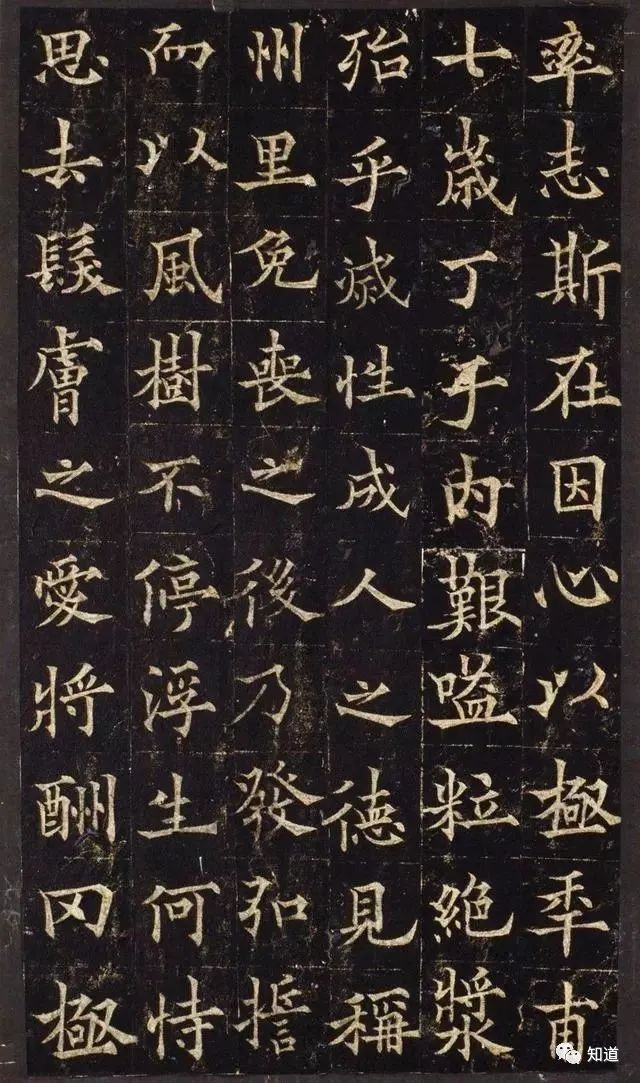 率志斯在因心以極年甫
七歲丁于內艱嗑粒絕漿
殆乎滅性成人之德見稱
州里免喪之後乃發弘誓
而以風樹不停浮生何恃
思去髮膚之愛將酬罔極
知道